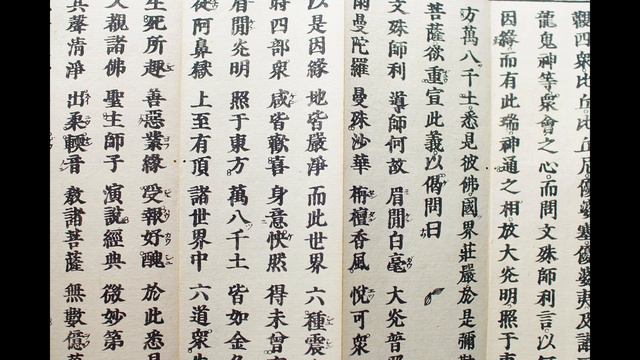 觀四衆比丘比丘尼優婆塞優婆夷及諸
龍鬼神等衆會之心而問文殊師利言以何
因緣而有此瑞神通之相放大光明照于東
方萬八千土悉見彼佛國界莊嚴於是彌勒
菩薩欲重宣此義以偈問曰
文殊師利 導師何故 眉間白毫 大光普照
雨曼陀羅 曼殊沙華 栴檀香風 悅可衆
以是因緣 地皆嚴淨 而此世界 六種震
時四部衆 咸皆歡喜 身意快然 得未曾有
眉間光明 照于東方 萬八千土 皆如金色
從阿鼻獄 上至有頂 諸世界中 六道衆生
生死所趣 善惡業緣 受報好醜 於此悉見
又覩諸佛 聖主師子 演說經典 微妙第
其聲清淨 出柔輭音 敎諸菩薩 無數億萬